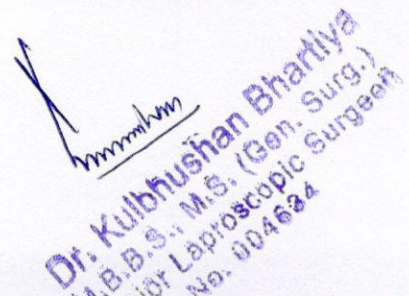 Dr. Kulbhushan Bhartiya
M.B.B.S., M.S. (Gen. Surg.)
Laproscopic Surgeon
No. 004634